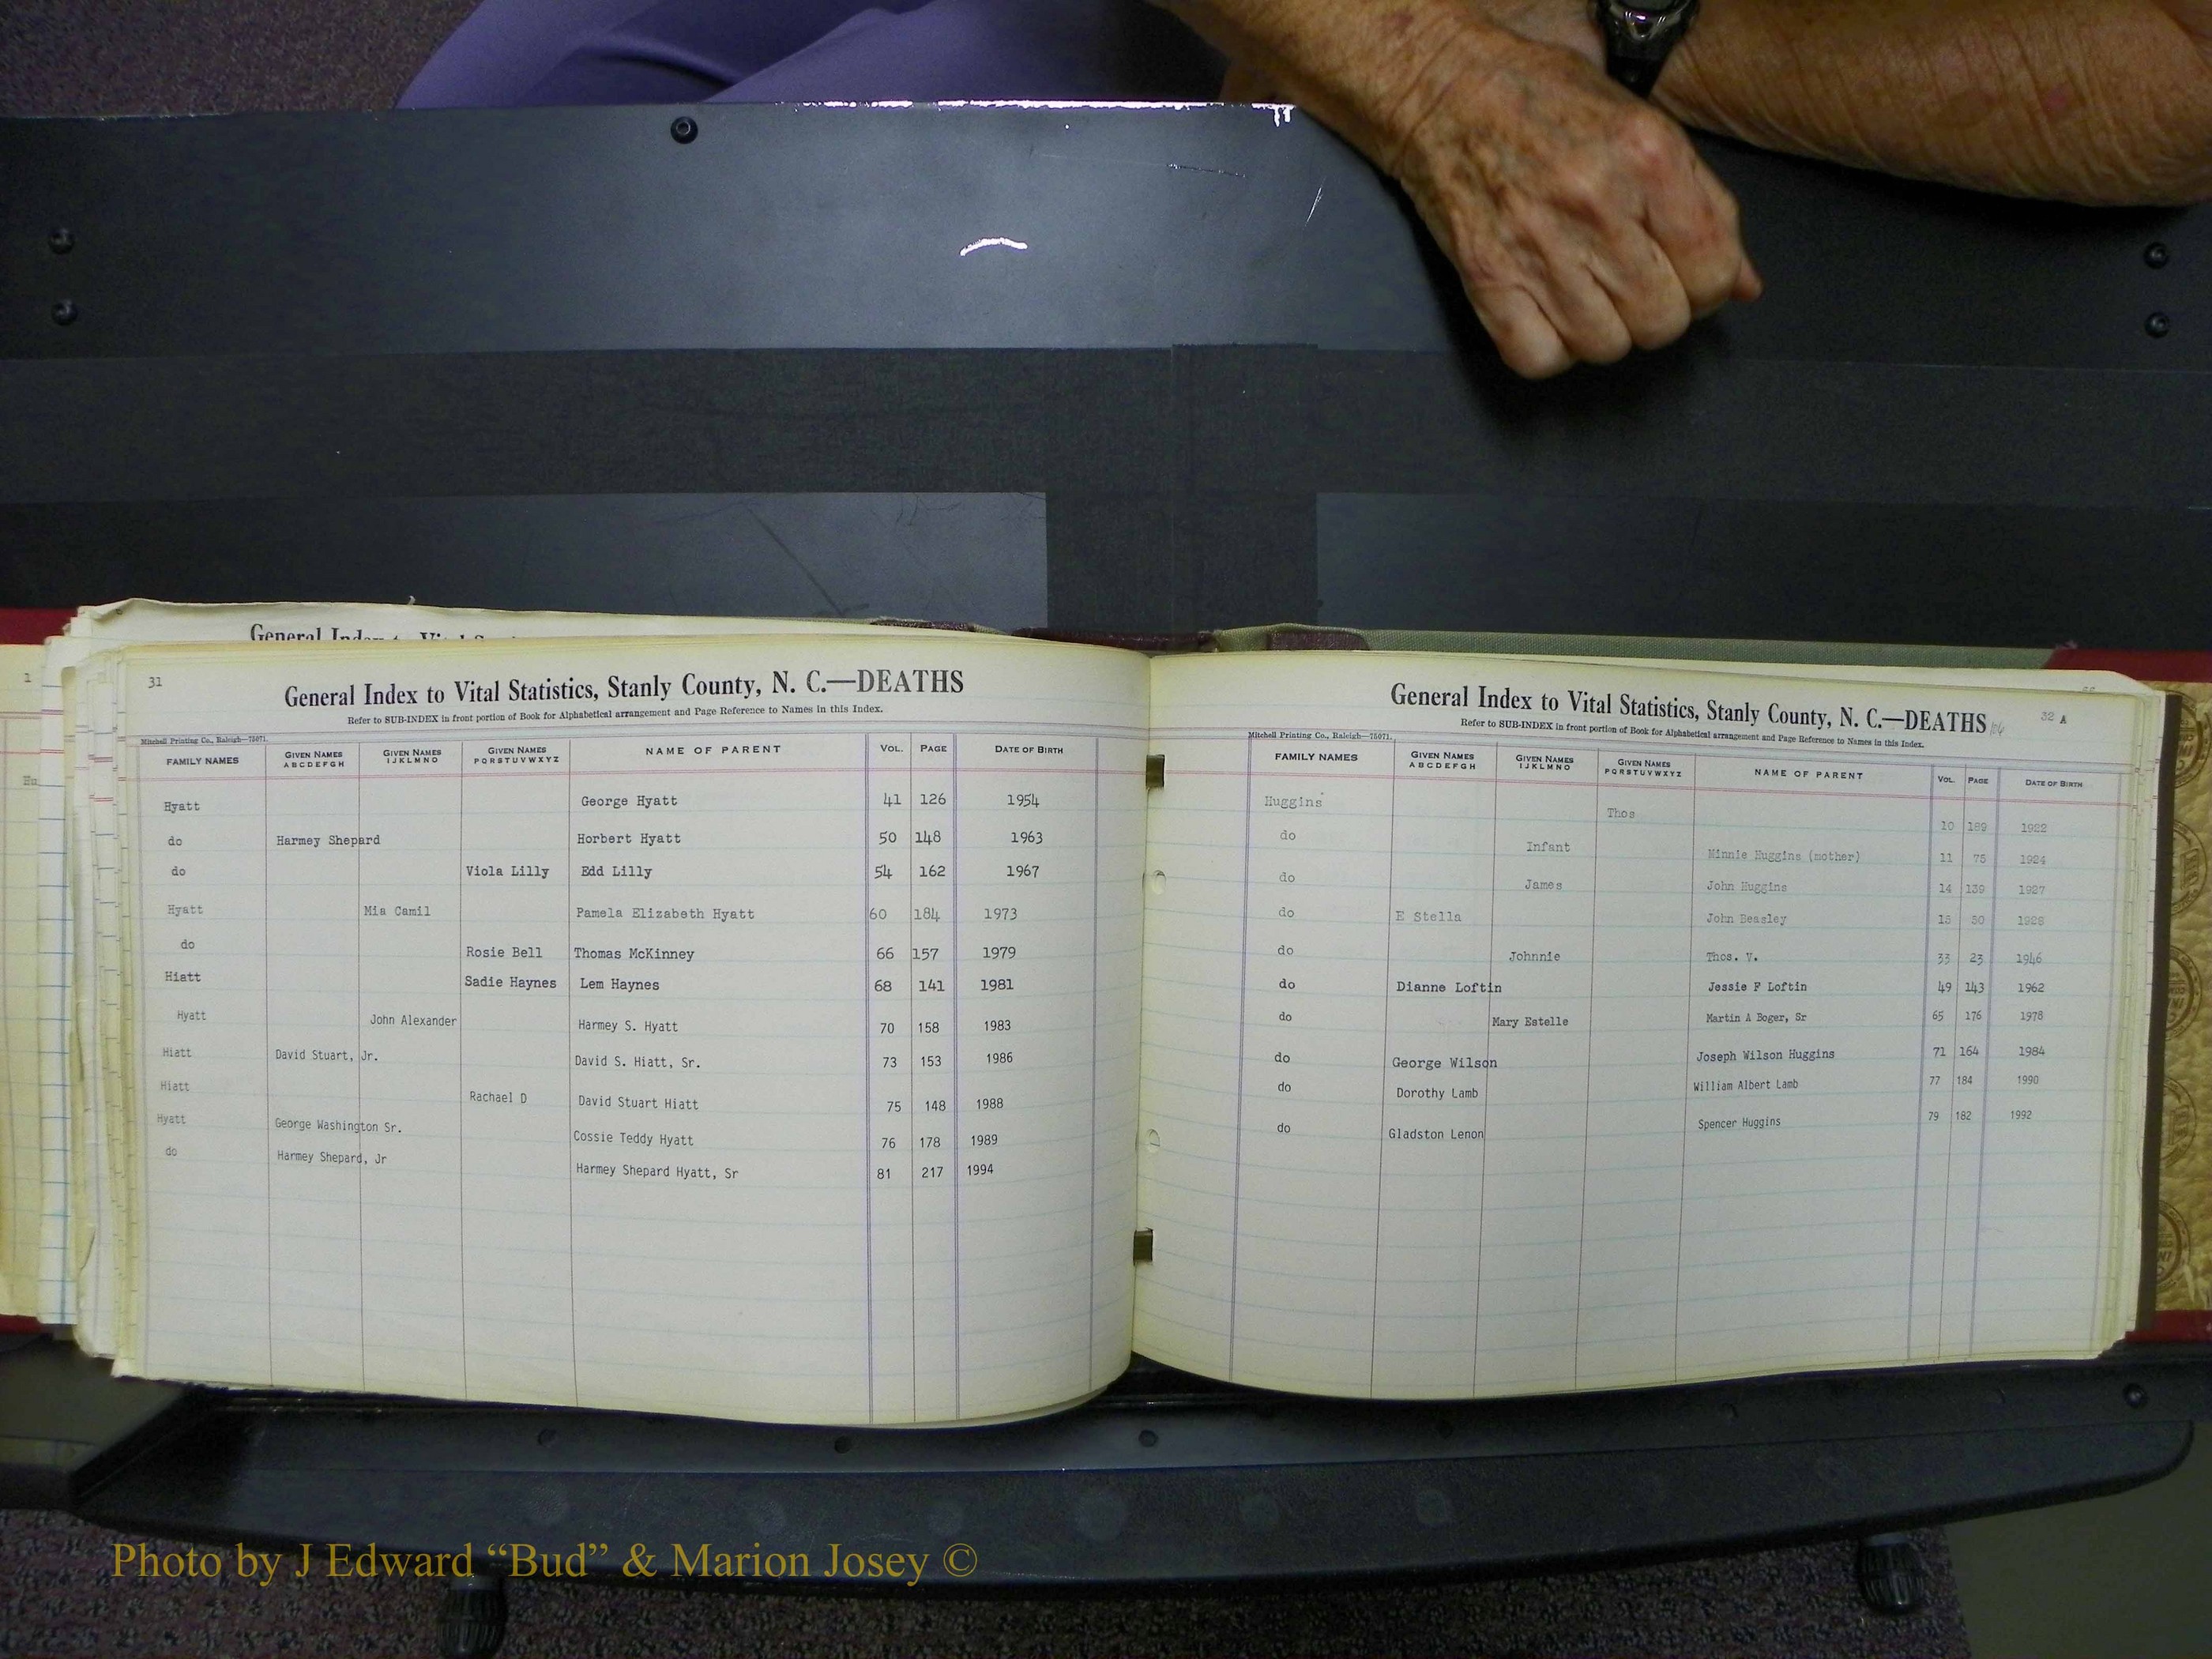 31
General Index to Vital Statistics, Stanly County, N. C.—DEATHS
Refer to SUB-INDEX in front portion of Book for Alphabetical arrangement and Page Reference to Names in this Index.
Mitchell Printing Co., Raleigh—75071.
FAMILY NAMES GIVEN NAMES ABCDEFGH GIVEN NAMES IJKLMNO GIVEN NAMES PQRSTUVWXYZ NAME OF PARENT VOL. PAGE DATE OF BIRTH
Hyatt George Hyatt 41 126 1954
do Harmey Shepard Horbert Hyatt 50 148 1963
do Viola Lilly Edd Lilly 54 162 1967
Hyatt Mia Camil Pamela Elizabeth Hyatt 60 184 1973
do Rosie Bell Thomas McKinney 66 157 1979
Hiatt Sadie Haynes Lem Haynes 68 141 1981
Hyatt John Alexander Harmey S. Hyatt 70 158 1983
Hiatt David Stuart, Jr. David S. Hiatt, Sr. 73 153 1986
Hiatt Rachael D David Stuart Hiatt 75 148 1988
Hyatt George Washington Sr. Cossie Teddy Hyatt 76 178 1989
do Harmey Shepard, Jr Harmey Shepard Hyatt, Sr 81 217 1994
32 A
General Index to Vital Statistics, Stanly County, N. C.—DEATHS
Refer to SUB-INDEX in front portion of Book for Alphabetical arrangement and Page Reference to Names in this Index.
Mitchell Printing Co., Raleigh—75071.
FAMILY NAMES GIVEN NAMES ABCDEFGH GIVEN NAMES IJKLMNO GIVEN NAMES PQRSTUVWXYZ NAME OF PARENT VOL. PAGE DATE OF BIRTH
Huggins Thos 10 189 1922
do Infant Minnie Huggins (mother) 11 75 1924
do James John Huggins 14 139 1927
do E Stella John Beasley 15 50 1928
do Johnnie Thos. V. 33 23 1946
do Dianne Loftin Jessie F Loftin 49 143 1962
do Mary Estelle Martin A Boger, Sr 65 176 1978
do George Wilson Joseph Wilson Huggins 71 164 1984
do Dorothy Lamb William Albert Lamb 77 184 1990
do Gladston Lenon Spencer Huggins 79 182 1992
Photo by J Edward “Bud” & Marion Josey ©